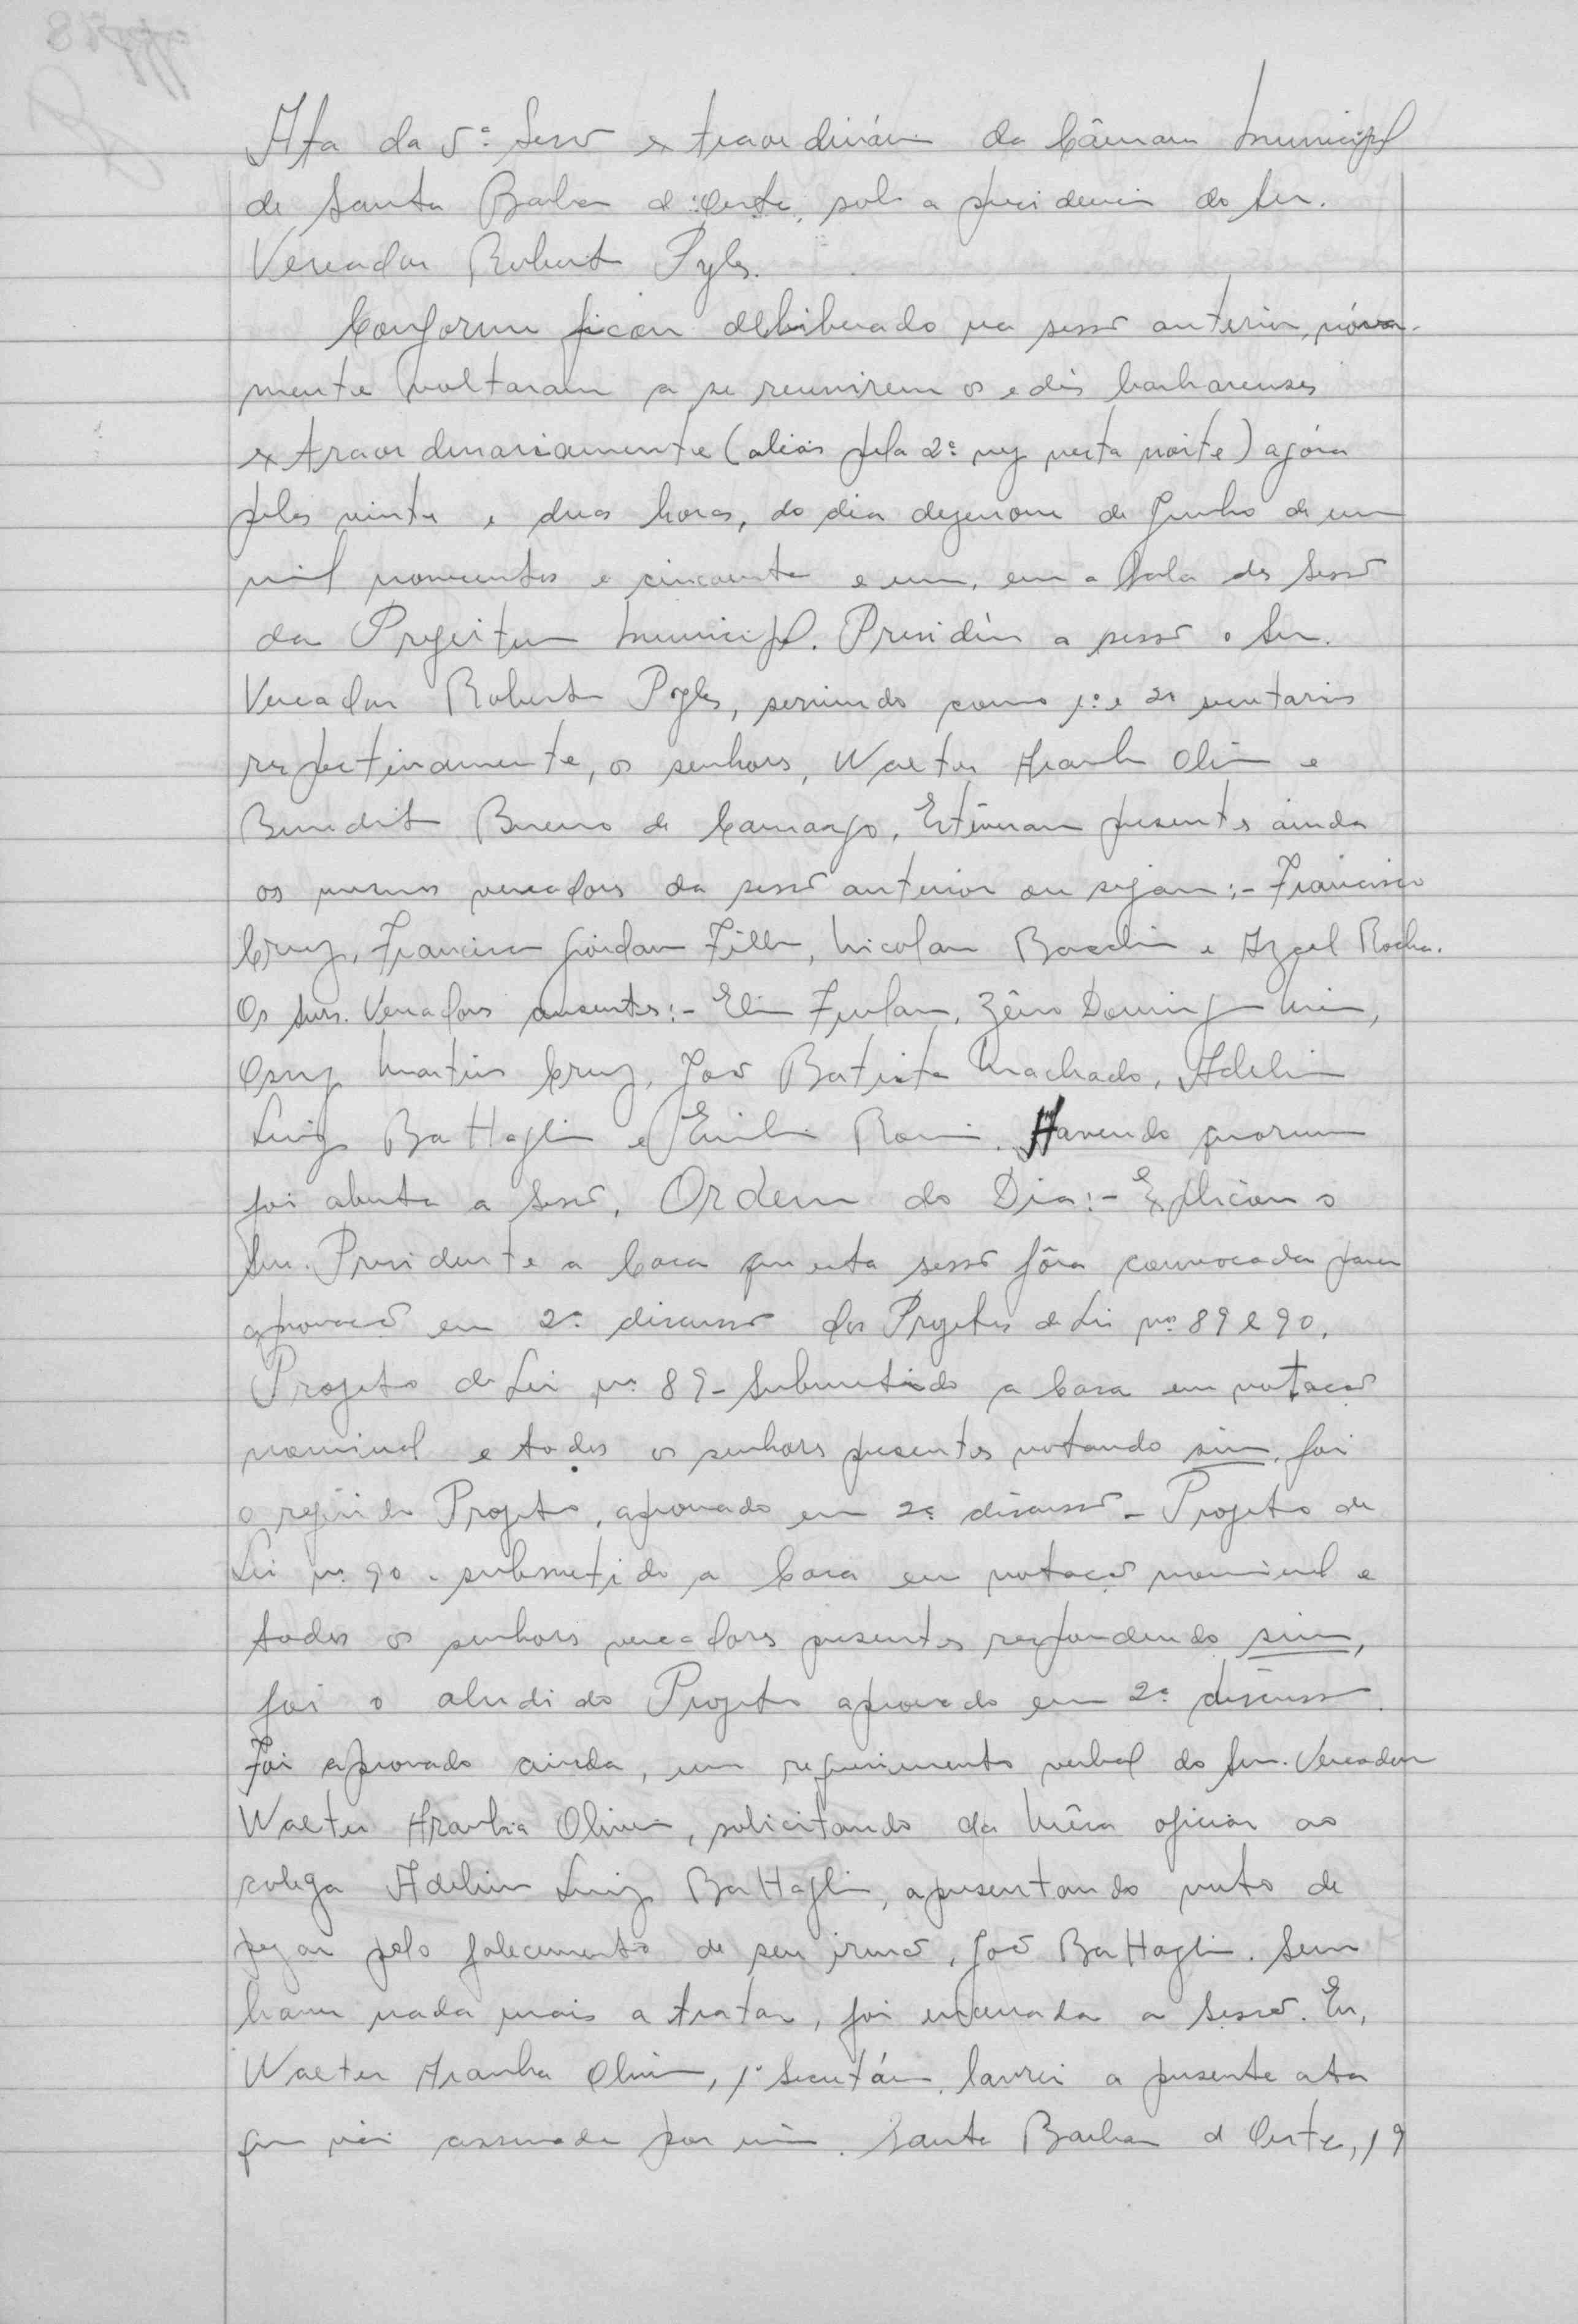 Ata da 5ª Sessão extraordinária da Câmara Municipal
de Santa Barbara d'Oeste, sob a presidencia do Snr.
Vereador Robert Pyles.
Conforme ficou deliberado na sessão anterior, nóva-
mente voltaram a se reunirem os edis barbarenses
extraordinariamente (aliás pela 2ª vez nesta noite) agóra
pelas vinte e duas horas, do dia dezenove de Junho de um
mil novecentos e cincoenta e um, em a Sala das Sessões
da Prefeitura Municipal. Presidiu a sessão o Snr.
Vereador Robert Pyles, servindo como 1º e 2º secretarios
respectivamente, os senhores, Walter Aranha Oliveira e
Benedito Bueno de Camargo. Estiveram presentes ainda
os mesmos vereadores da sessão anterior ou sejam:- Francisco
Cruz, Francisco Giordano Filho, Nicolau Bacchin e Azael Rocha.
Os Snrs. Vereadores ausentes:- Elio Furlan, Zêno Domingos Maia,
Osny Martins Cruz, João Batista Machado, Adelino
Luiz Battaglia e Emilio Romi. Havendo quorum
foi aberta a Sessão. Ordem do Dia:- Explicou o
Snr. Presidente a Casa que esta sessão fôra convocada para
aprovação em 2ª discussão dos Projetos de Lei nºs 89 e 90.
Projeto de Lei nº 89 - Submetido a Casa em votação
nominal e todos os senhores presentes votando sim, foi
o referido Projeto, aprovado em 2ª discussão - Projeto de
Lei nº 90 - submetido a Casa em votação nominal e
todos os senhores vereadores presentes respondendo sim,
foi o aludido Projeto aprovado em 2ª discussão.
Foi aprovado ainda, um requerimento verbal do Snr. Vereador
Walter Aranha Oliveira, solicitando da Mêsa oficiar ao
colega Adelino Luiz Battaglia, apresentando voto de
pezar pelo falecimento de seu irmão, João Battaglia. Sem
haver nada mais a tratar, foi encerrada a Sessão. Eu,
Walter Aranha Oliveira, 1º Secretário, lavrei a presente ata
que vai assinada por mim. Santa Barbara d'Oeste, 19